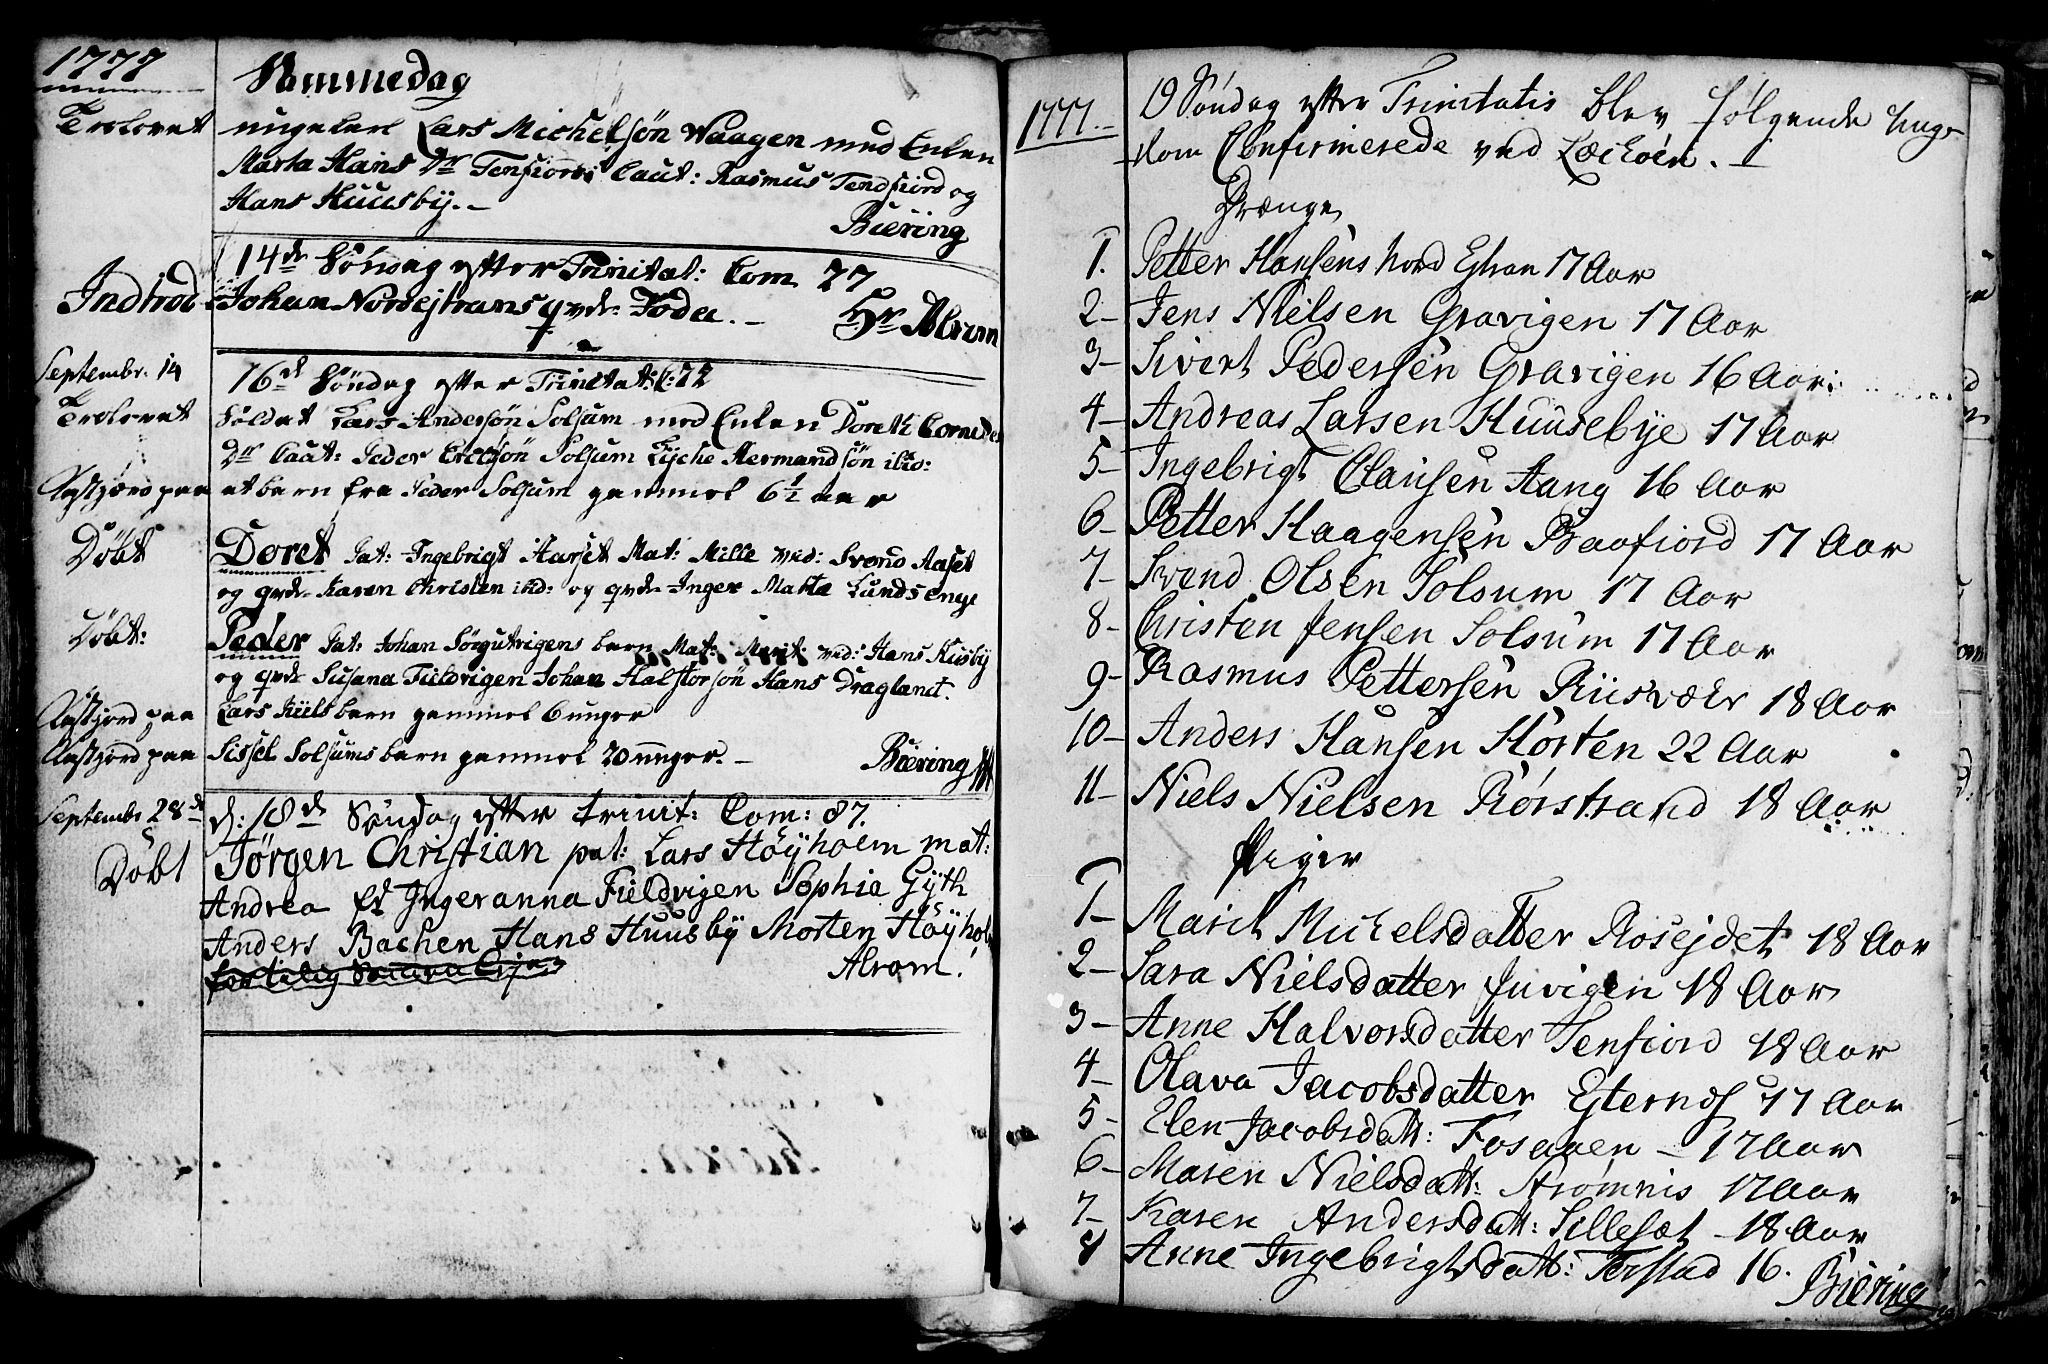 1777
Sammedag
Trolovet ungekarl Lars Michelsøn Waagen med Enken
Marta Hans Dr Tenfiord Caut: Rasmus Tendfiord og
Hans Huusby.-
Biering
14de Søndag efter Trinitat: Com. 27
Indtrod Johan Nordejtrans qvde Foda. - Hr Alrom
Septembr. 14 16d Søndag efter Trinitat: C: 72
Trolovet Soldat Lars Andersøn Solsum med Enken Doreth
Dr Caut: Peder Ericsøn Solsum Lyche Hermandsøn ibid:
Castjord paa et barn fra Peder Solsum gammel 6 1/2 aar
Døbt Doret Pat: Ingebrigt Harset Mat: Mille ved: Svend Aaset
og qvde Karen Christen ibid: og qvde Inger Marta Lundsenge
Døbt: Peder Pat: Johan Sørgutvigens barn Mat: Marit ved: Hans Kusby
og qvde Susana Fieldvigen Johan Halstorsøn Hans Draglant.
Castjord paa Lars Kiils barn gammel 6 unger
Castjord paa Sissel Solsums barn gammel 20 unger. - Biering
Septembr 28de d: 18d Søndag efter trinit: Com: 87.
Døbt Jørgen Christian pat: Lars Høyholm mat:
Andrea Ingeranna Fieldvigen Sophia Gÿth
Anders Bachen Hans Huusby Morten Høyhol
Alrom.
1777. 19 Søndag efter Trinitatis blev følgende Ung-
dom Confirmerede ved Lechøen. -
Drænge
1. Petter Hansens Nord Ejtran 17 Aar
2- Jens Nielsen Gravigen 17 Aar
3- Sivert Pedersen Gravigen 16 Aar
4- Andreas Larsen Huusebye 17 Aar
5- Ingebrigt Clausen Hang 16 Aar
6- Petter Haagensen Baafiord 17 Aar
7- Svend Olsen Solsum 17 Aar
8- Christen Jensen Solsum 17 Aar
9- Rasmus Pettersen Riisvær 18 Aar
10- Anders Hansen Horten 22 Aar
11- Niels Nielsen Rørstrand 18 Aar
Piger
1- Marit Michelsdatter Rosejdet 18 Aar
2- Sara Nielsdatter Juvigen 18 Aar
3- Anne Halvorsdatter Tenfiord 18 Aar
4- Olava Jacobsdatter Ejternes 17 Aar
5- Elen Jacobsdatt: Fosaaen - 17 Aar
6- Maren Nielsdatt: Strømnis 17 Aar
7- Karen Andersdatt: Sillesæt - 18 Aar
8 Anne Ingebrigtsdatt: Terstad 16.
Biering